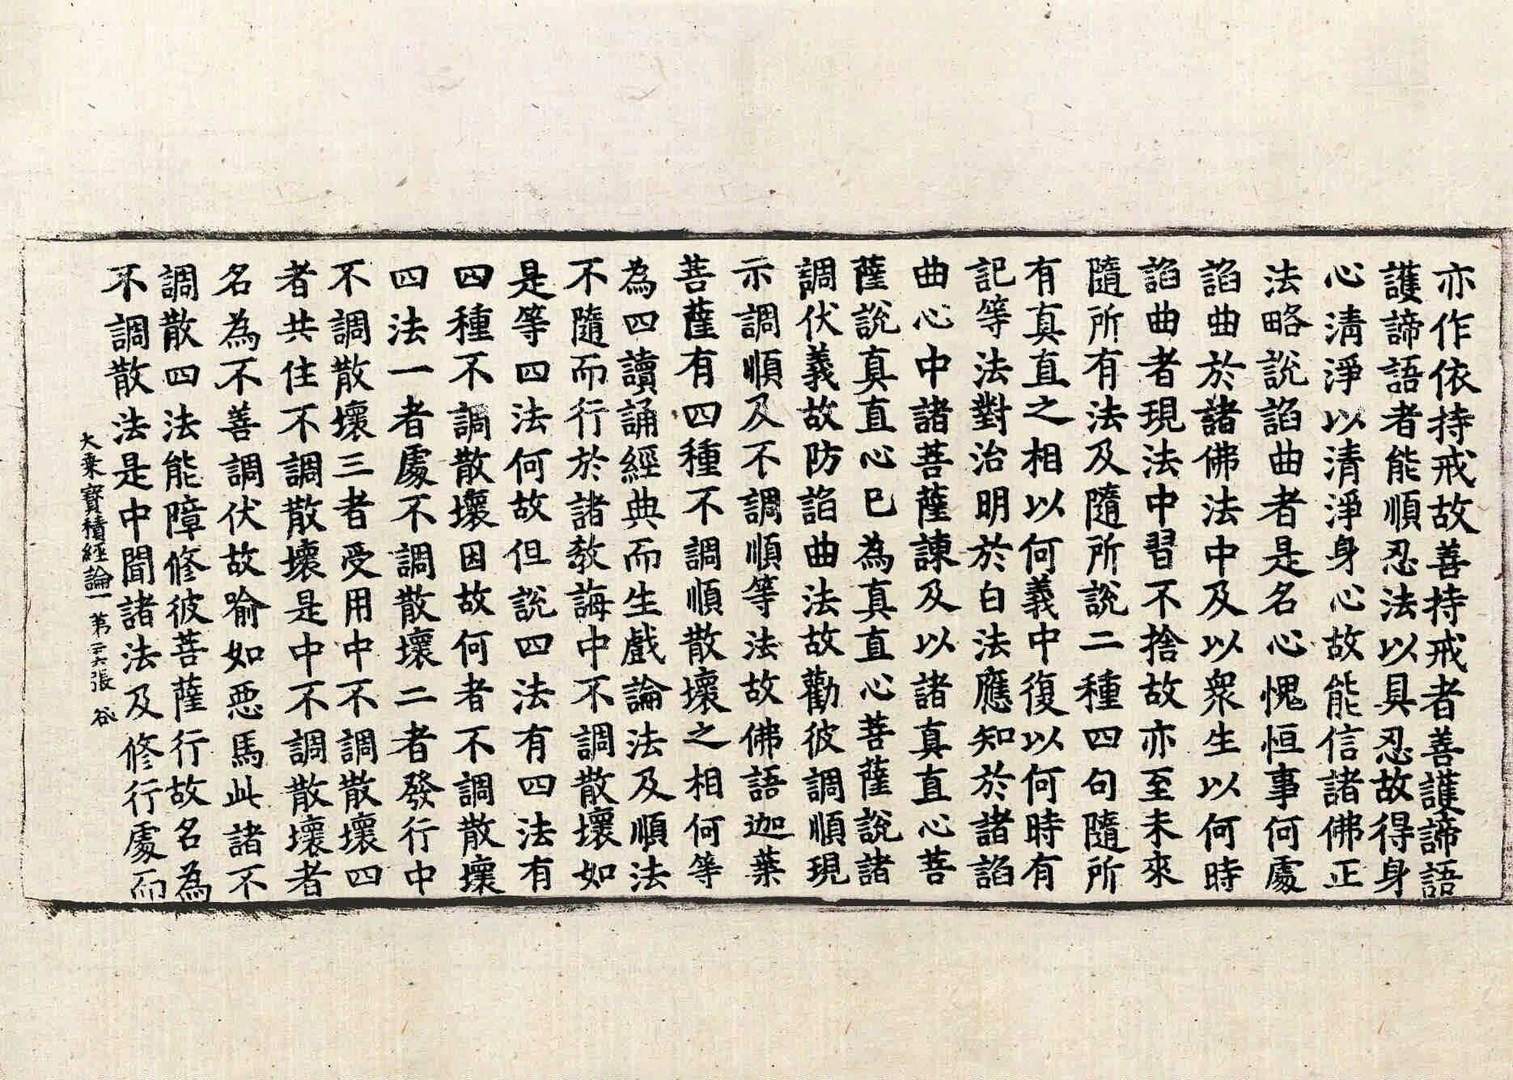 亦作依持戒故善持戒者善護諦語
護諦語者能順忍法以具忍故得身
心清淨以清淨身心故能信諸佛正
法略說諂曲者是名心愧恒事何處
諂曲於諸佛法中及以衆生以何時
諂曲者現法中習不捨故亦至未來
隨所有法及隨所說二種四句隨所
有真直之相以何義中復以何時有
記等法對治明於白法應知於諸諂
曲心中諸菩薩諫及以諸真直心菩
薩說真直心已為真直心菩薩說諸
調伏義故防諂曲法故勸彼調順現
示調順及不調順等法故佛語迦葉
菩薩有四種不調順散壞之相何等
為四讀誦經典而生戲論法及順法
不隨而行於諸教誨中不調散壞如
是等四法何故但說四法有四法有
四種不調散壞因故何者不調散壞
四法一者處不調散壞二者發行中
不調散壞三者受用中不調散壞四
者共住不調散壞是中不調散壞者
名為不善調伏故喻如惡馬此諸不
調散四法能障修彼菩薩行故名為
不調散法是中聞諸法及修行處而
大乘寶積經論一 第二六張 谷